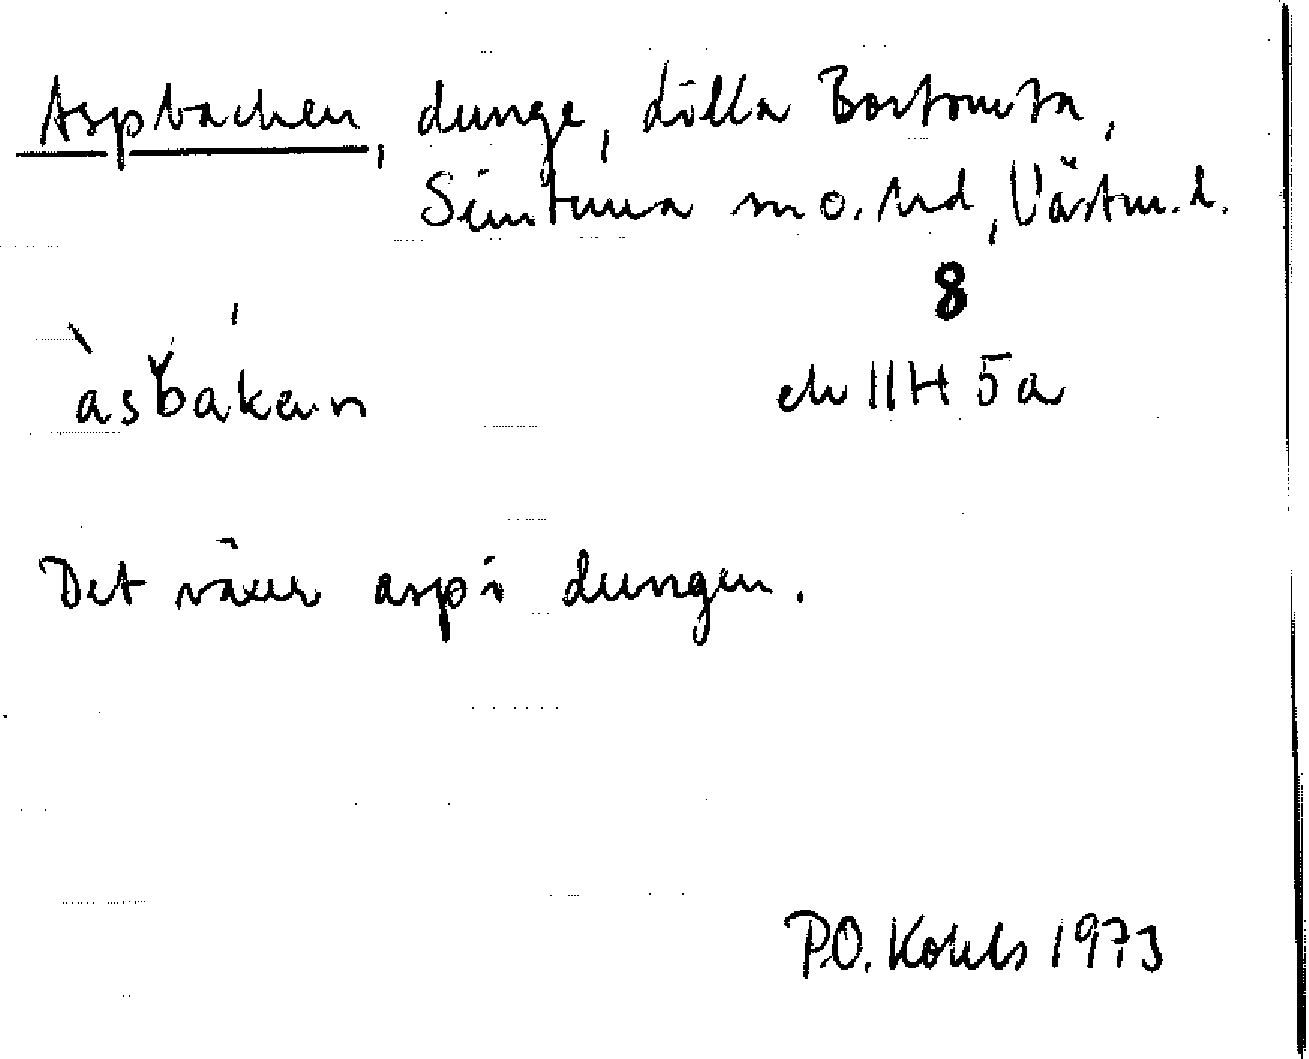 Aspbacken, dunge, Lilla Bortomta,
Simtuna sn o. hd, Västm. l.
8
àsbak̀ean
ek 11H 5a
Det växer asp i dungen.
P.O. Kohls 1973